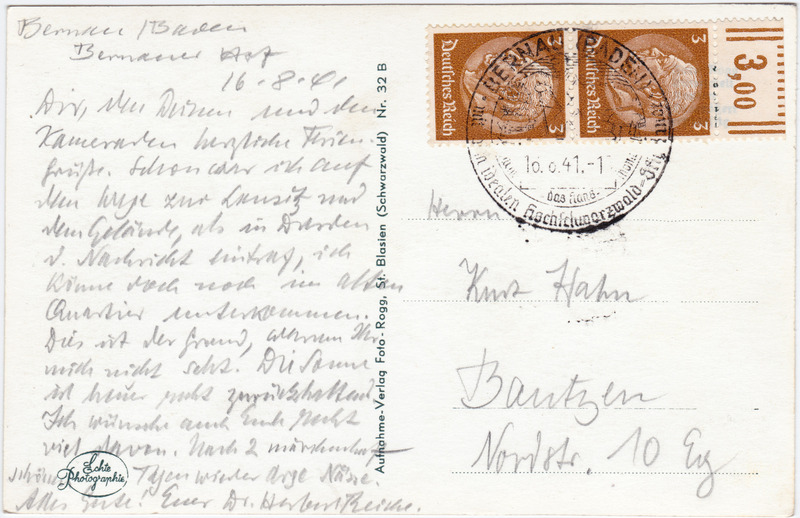 Bernau/Baden
Bernauer Hof
16.8.41
Dir, den Deinen und den
Kameraden herzliche Ferien-
grüße. Schon war ich auf
dem Wege zur Lausitz und
dem Gelände, als in Dresden
d. Nachricht eintraf, ich
könne doch noch im alten
Quartier unterkommen.
Dies ist der Grund, warum Ihr
mich nicht seht. Die Sonne
ist heuer recht zurückhaltend
Ich wünsche auch Euch recht
viel davon. Nach 2 märchenhaft
schönen Tagen wieder arge Nässe.
Alles Gute! Euer Dr. Herbert Reiche.
Echte
Photographie
Aufnahme-Verlag Foto-Rogg, St. Blasien (Schwarzwald) Nr. 32 B
Deutsches Reich
3
3
Deutsches Reich
3
3
3,00
BERNAU (BADEN)
16.8.41.-1
das Hans-
idealen Hochschwarzwald-
Herrn
Kurt Hahn
Bautzen
Nordstr. 10 Eg